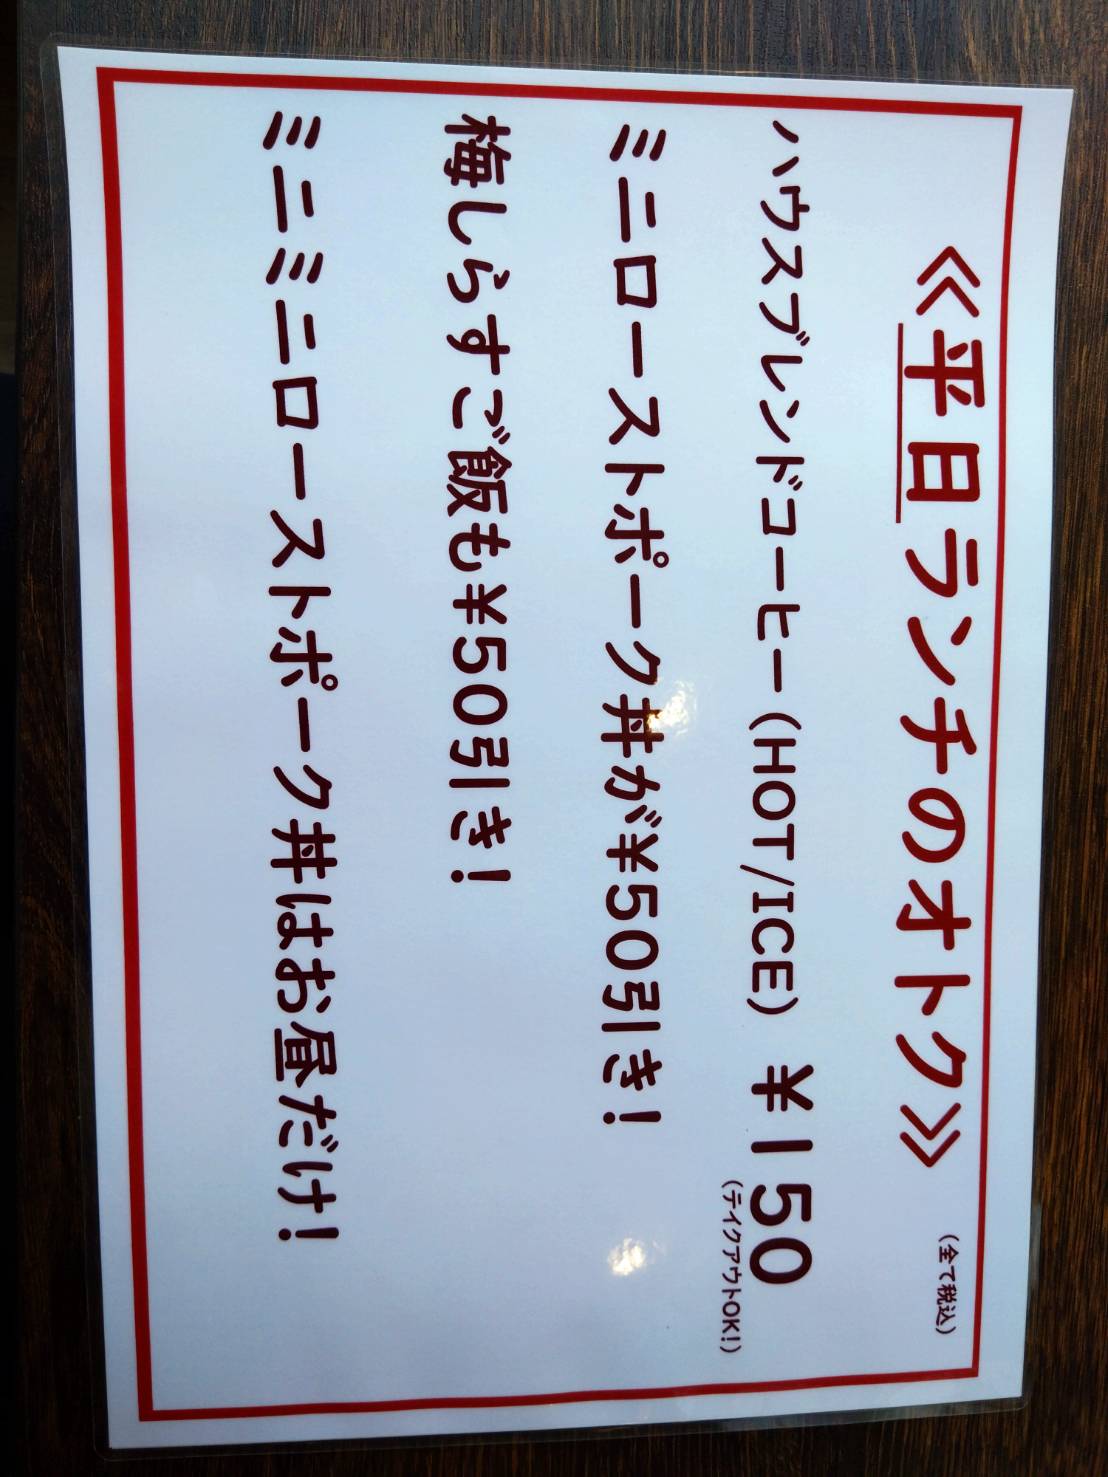 ≪平日ランチのオトク≫ (全て税込)
ハウスブレンドコーヒー(HOT/ICE) ¥150
(テイクアウトOK!)
ミニローストポーク丼が¥50引き!
梅しらすご飯も¥50引き!
ミニミニローストポーク丼はお昼だけ!